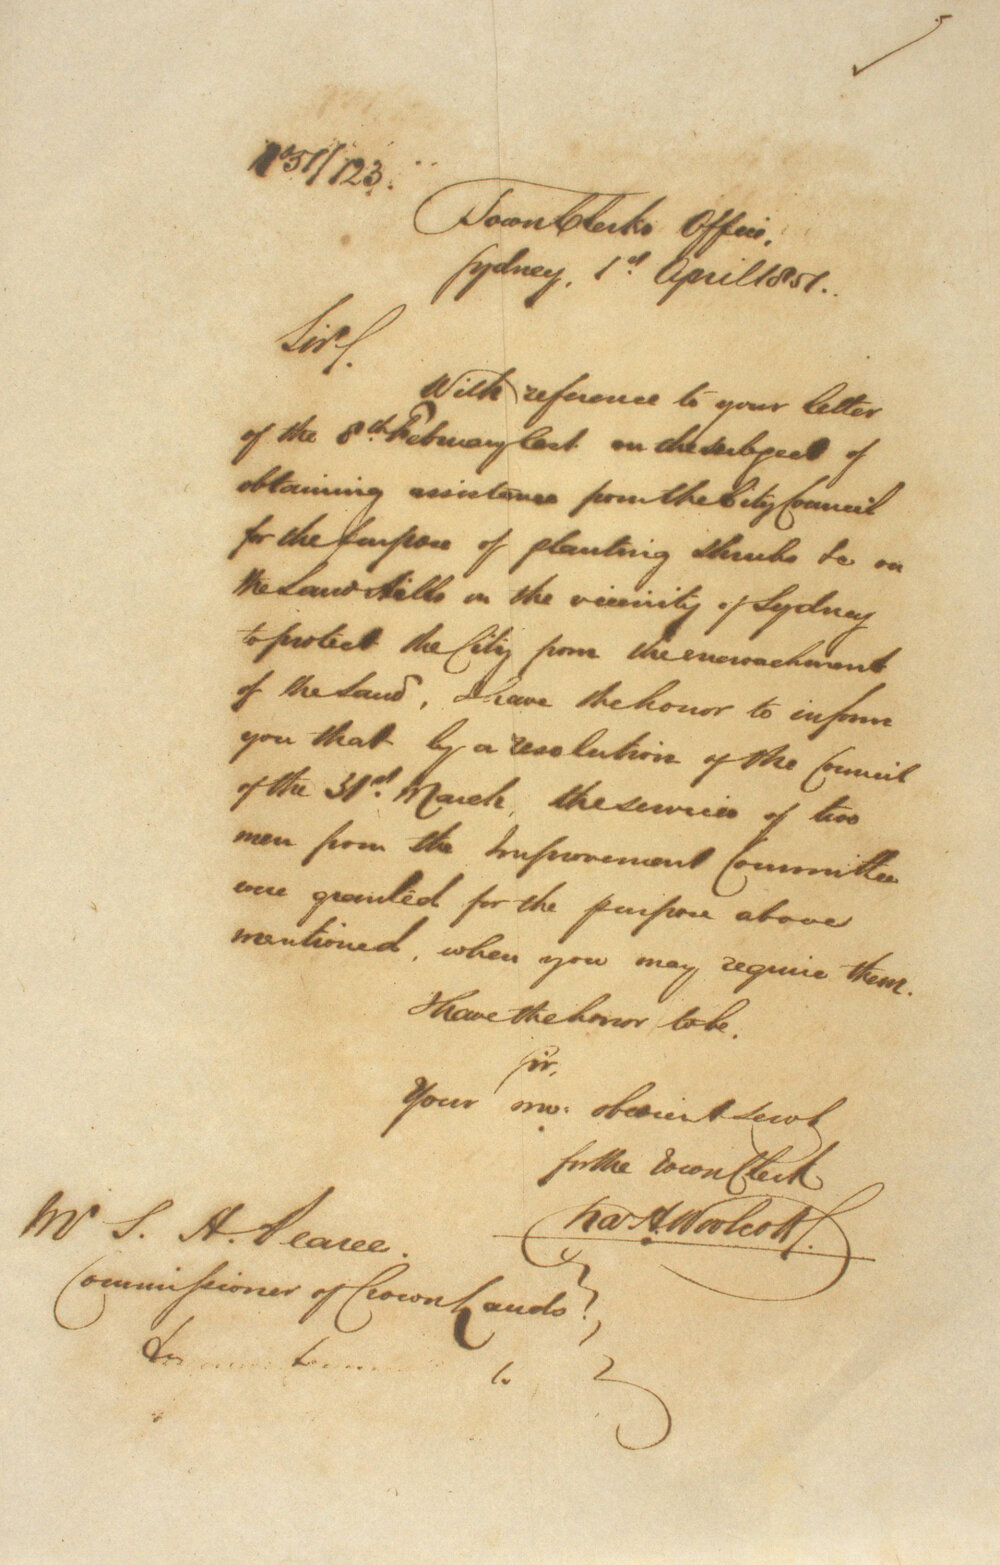 No 51/123.
Town Clerks Office,
Sydney, 1st April 1851.
Sir,
With reference to your letter
of the 8th February last on the subject of
obtaining assistance from the City Council
for the purpose of planting shrubs &c on
the Sand Hills in the vicinity of Sydney
to protect the City from the encroachment
of the Sand, I have the honor to inform
you that by a resolution of the Council
of the 31st March, the services of two
men from the Improvement Committee
were granted for the purpose above
mentioned, when you may require them.
I have the honor to be.
Sir,
Your mo: obedient Servt
for the Town Clerk
Chas H Woolcott.
Mr S. H. Pearce.
Commissioner of Crown Lands